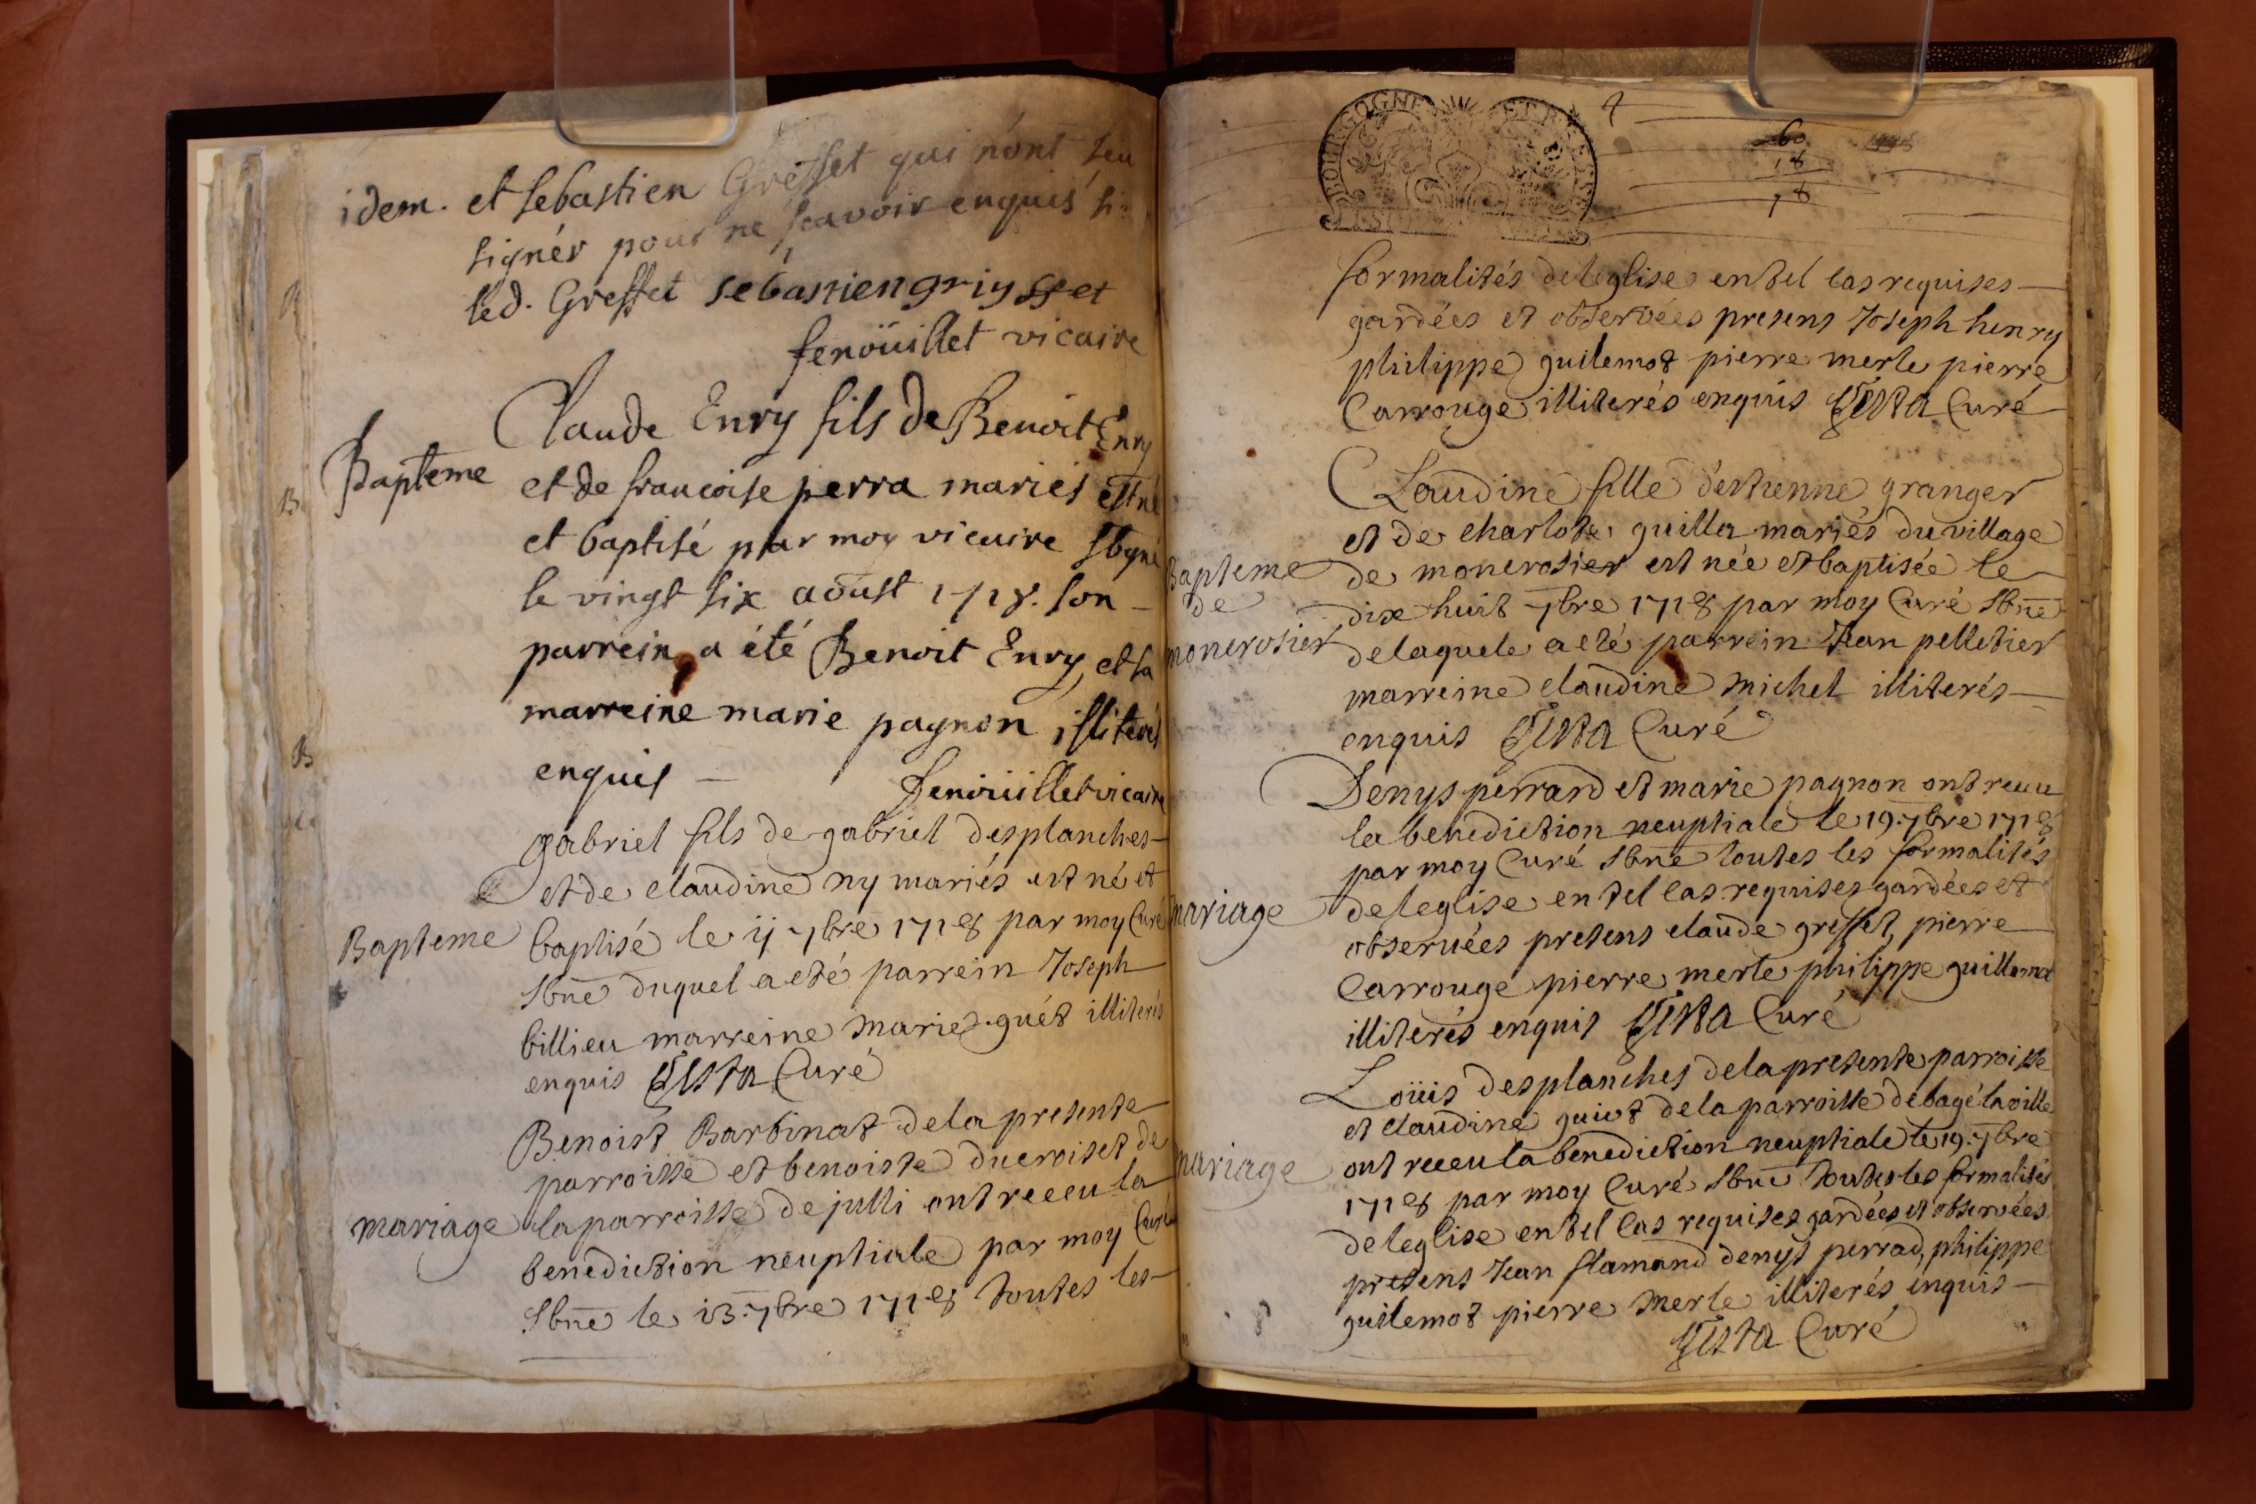 idem. et sebastien Gresset qui n'ont seu
signér pour ne scavoir enquis si
led. Gresset sébastiengriysset
fenoüillet vicaire
Claude Enry fils de Benoit Enry
Baptême et de francoise perra mariés est né
et baptisé par moy vicaire sbgné
le vingt six aoust 1718. son
parrein a été Benoit Enry, et sa
marreine marie pagnon illiterés
enquis - fenoüillet vicaire
gabriel fils de gabriel desplanches
et de claudine ny mariés est né et
Bapteme baptisé le ij 7bre 1718 par moy Curé
sbne duquel a eté parrein Joseph
billieu marreine marie guét illiterés
enquis Gista Curé
Benoist Barbinat de la presente
parroisse et benoiste ducroiset de
mariage la parroisse de julli ont receu la
benediction neuptiale par moy Curé
sbne le 13. 7bre 1718 toutes les
BOURGOGNE ET BRESSE
4
60
18
18
formalités de leglise en tel cas requises
gardées et observées presens Joseph henry
philippe guilemot pierre merle pierre
Carrouge illiterés enquis Gista Curé
Claudine fille d'estienne granger
et de charlote guilla mariés du village
Bapteme de monerosier est née et baptisée le
de dix huit 7bre 1718 par moy Curé sbne
monerosier de laquele a eté parrein Jean pelletier
marreine claudine michel illiterés
enquis Gista Curé
Denys perrard et marie pagnon ont receu
la benediction neuptiale le 19. 7bre 1718
par moy Curé sbne toutes les formalités
mariage de leglise en tel cas requises gardées et
observées presens claude gresset, pierre
Carrouge pierre merle philippe guillemot
illiterés enquis Gista Curé
Loüis desplanches de la presente parroisse
et claudine guiot de la parroisse de bagé la ville
mariage ont receu la benediction neuptiale le 19. 7bre
1718 par moy Curé sbne toutes les formalités
de leglise en tel cas requises gardées et observées
presens Jean flamand denys perrad, philippe
guilemot pierre merle illiterés enquis
Gista Curé